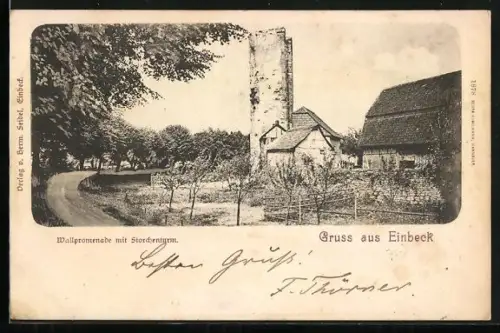 Verlag v. Herm. Seidel, Einbeck.
1878
Wallpromenade mit Storchenturm.
Gruss aus Einbeck
Besten Gruß!
F. Thörner.